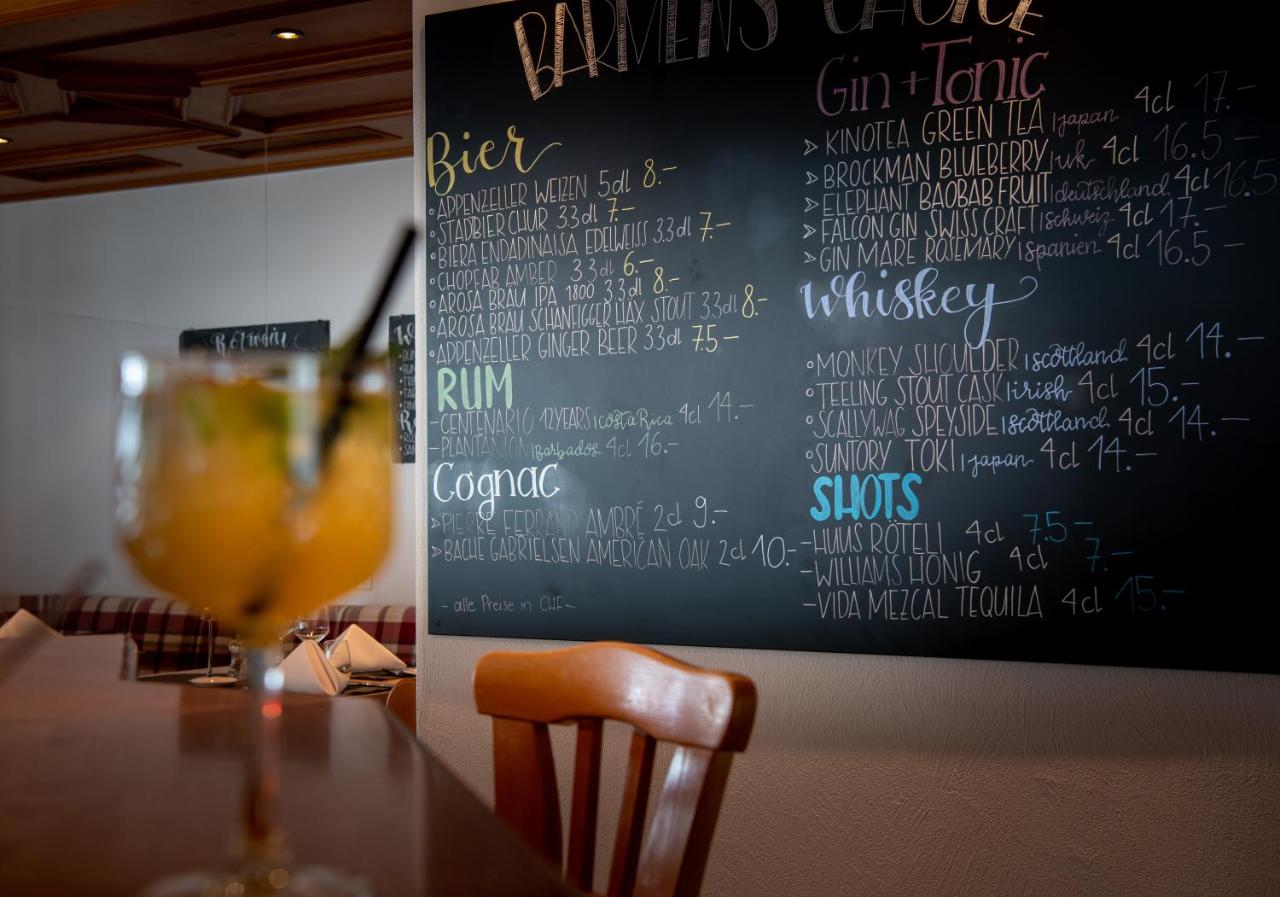 BARMENS CHOICE
Bier
APPENZELLER WEIZEN 5dl 8.-
STADBIER CHUR 3.3dl 7.-
BIERA ENDADINAISA EDELWEISS 3.3dl 7.-
CHOPFAB AMBER 3.3dl 6.-
AROSA BRÄU IPA 1800 3.3dl 8.-
AROSA BRÄU SCHANFIGGER HAX STOUT 3.3dl 8.-
APPENZELLER GINGER BEER 3.3dl 7.5-
RUM
- CENTENARIO 12 YEARS | Costa Rica 4cl 14.-
- PLANTANION | Barbados 4cl 16.-
Cognac
> PIERRE FERRAND AMBRÉ 2cl 9.-
> BACHE GABRIELSEN AMERICAN OAK 2cl 10.-
- alle Preise in CHF -
Gin + Tonic
> KINOTEA GREEN TEA | japan 4cl 17.-
> BROCKMAN BLUEBERRY | uk 4cl 16.5-
> ELEPHANT BAOBAB FRUIT | deutschland 4cl 16.5
> FALCON GIN SWISS CRAFT | schweiz 4cl 17.-
> GIN MARE ROSEMARY | spanien 4cl 16.5-
Whiskey
MONKEY SHOULDER | scottland 4cl 14.-
TEELING STOUT CASK | irish 4cl 15.-
SCALLYWAG SPEYSIDE | scottland 4cl 14.-
SUNTORY TOKI | japan 4cl 14.-
SHOTS
- HUUS RÖTELI 4cl 7.5-
- WILLIAMS HONIG 4cl 7.-
- VIDA MEZCAL TEQUILA 4cl 15.-